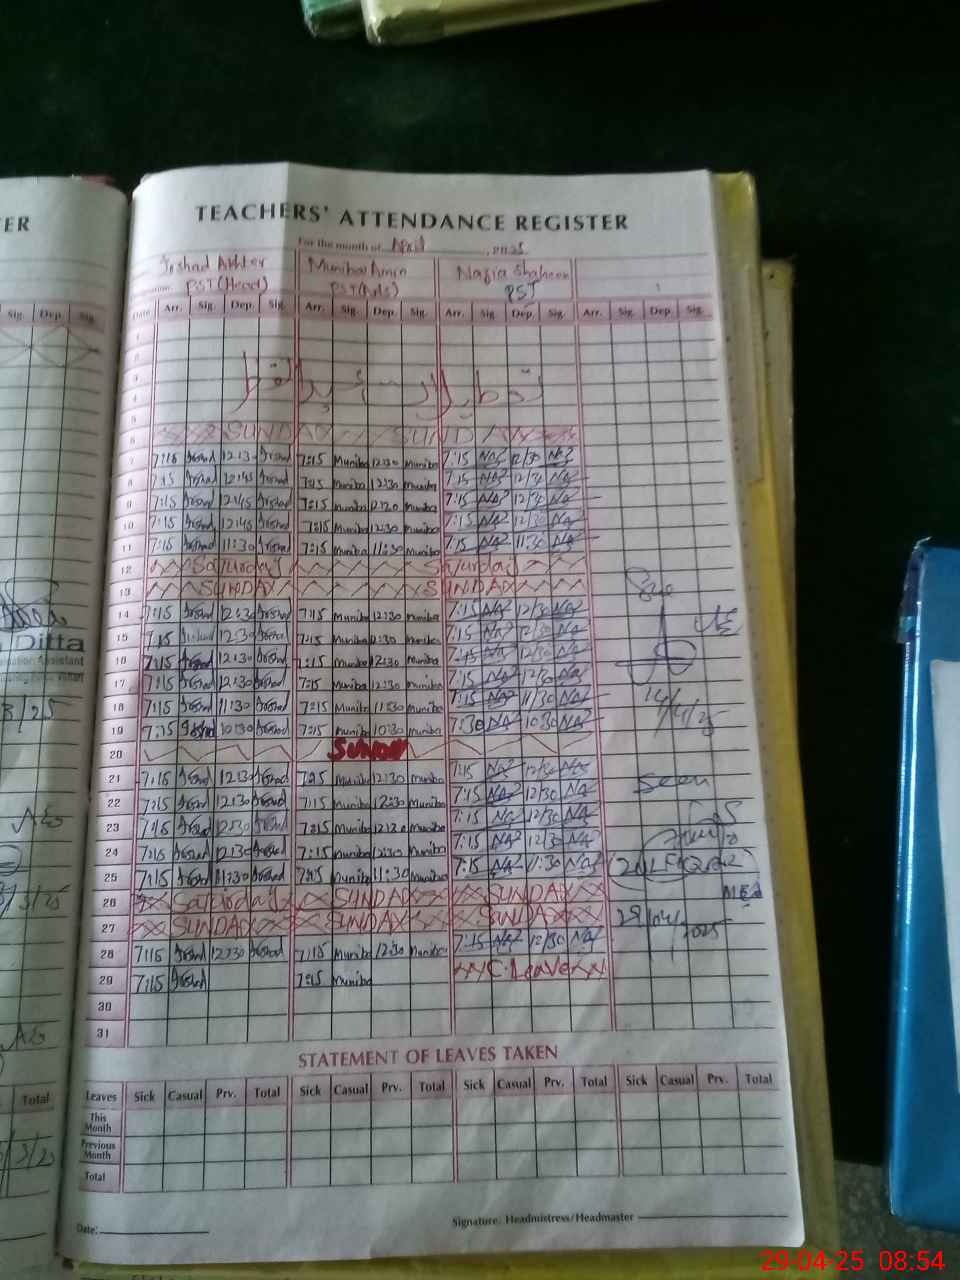 TER
TEACHERS' ATTENDANCE REGISTER
For the month of April, 2025
Irshad Akhter Muniba Amin Nazia Shaheen
PST (Head) PST (Arts) PST
Sig. Dep. Sig. Date Arr. Sig. Dep. Sig. Arr. Sig. Dep. Sig. Arr. Sig. Dep. Sig. Arr. Sig. Dep. Sig.
1
2
3
تعطیلات عید الفطر
4
5
6 SUNDAY SUNDAY
7 7:15 Irshad 12:30 Irshad 7:15 Muniba 12:30 Muniba 7:15 12/30
8 7:15 Irshad 12:45 Irshad 7:15 Muniba 12:30 Muniba 7:15 12/30
9 7:15 Irshad 12:45 Irshad 7:15 Muniba 12:30 Muniba 7:15 12/30
10 7:15 Irshad 12:45 Irshad 7:15 Muniba 12:30 Muniba 7:15 12/30
11 7:15 Irshad 11:30 Irshad 7:15 Muniba 11:30 Muniba 7:15 11:30
12 Saturday Saturday
13 SUNDAY SUNDAY
14 7:15 Irshad 12:30 Irshad 7:15 Muniba 12:30 Muniba 7:15 12/30
15 7:15 Irshad 12:30 Irshad 7:15 Muniba 12:30 Muniba 7:15 12/30
Ditta
16 7:15 Irshad 12:30 Irshad 7:15 Muniba 12:30 Muniba 7:15 12/30
17 7:15 Irshad 12:30 Irshad 7:15 Muniba 12:30 Muniba 7:15 12/30
18 7:15 Irshad 11:30 Irshad 7:15 Muniba 11:30 Muniba 7:15 11/30
14/4/25
19 7:15 Irshad 10:30 Irshad 7:15 Muniba 10:30 Muniba 7:30 10:30
20 SUNDAY
21 7:15 Irshad 12:30 Irshad 7:15 Muniba 12:30 Muniba 7:15 12/30
Seen
22 7:15 Irshad 12:30 Irshad 7:15 Muniba 12:30 Muniba 7:15 12/30
23 7:15 Irshad 12:30 Irshad 7:15 Muniba 12:30 Muniba 7:15 12/30
24 7:15 Irshad 12:30 Irshad 7:15 Muniba 12:30 Muniba 7:15 12/30
25 7:15 Irshad 11:30 Irshad 7:15 Muniba 11:30 Muniba 7:15 11:30
26 Saturday SUNDAY SUNDAY
27 SUNDAY SUNDAY SUNDAY
29/04/2025
28 7:15 Irshad 12:30 Irshad 7:15 Muniba 12:30 Muniba 7:15 12/30
29 7:15 Irshad 7:15 Muniba C. Leave
30
31
STATEMENT OF LEAVES TAKEN
Total Leaves Sick Casual Prv. Total Sick Casual Prv. Total Sick Casual Prv. Total Sick Casual Prv. Total
This Month
Previous Month
Total
Date: Signature: Headmistress/Headmaster
29-04-25 08:54